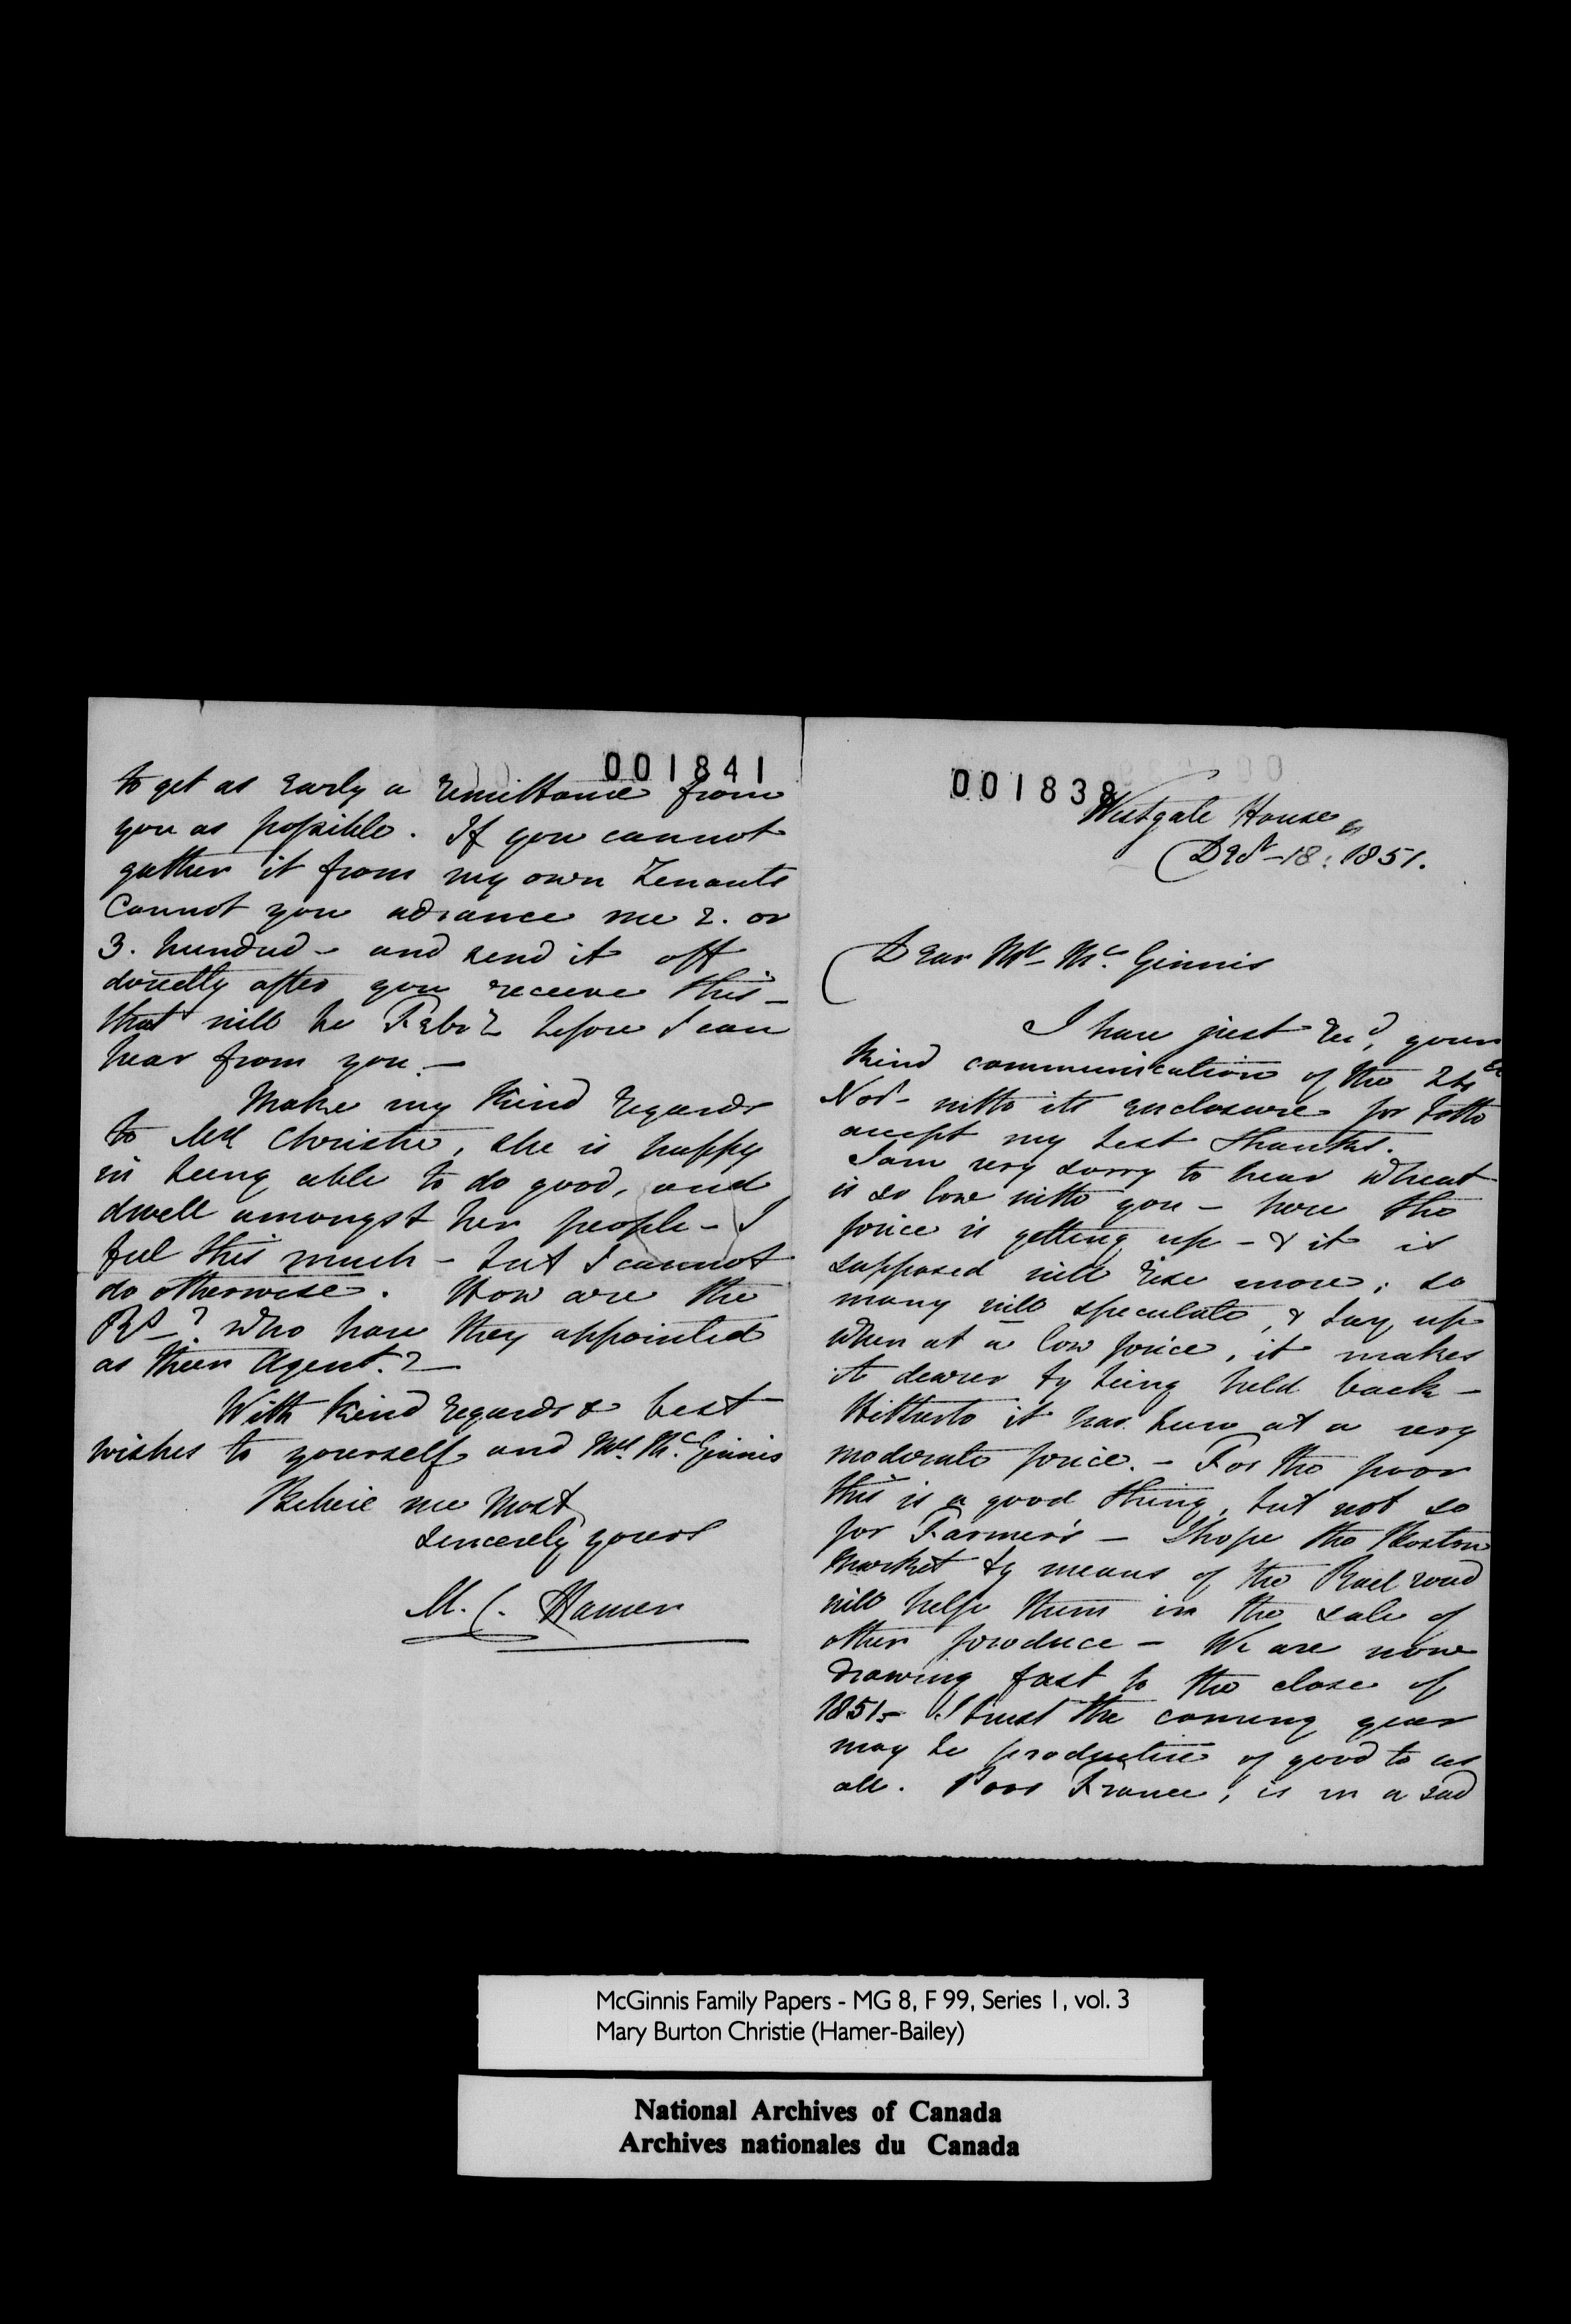 001841
to get as early a remittance from
you as possible. If you cannot
gather it from my own Tenants
Cannot you advance me 2. or
3. hundred - and send it off
directly after you receive this -
that will be Feby before I can
hear from you. -
Make my kind regards
to Mrs Christie, she is happy
in being able to do good, and
dwell amongst her people - I
feel this much - but I cannot
do otherwise. How are the
Rs -? Who have they appointed
as their Agent.? -
With kind regards & best
wishes to yourself and Mrs. McGinnis
Believe me Most
sincerely yours
M. C. Hamer
001838
Westgate House
Decr - 18: 1851.
Dear Mr - Mc. Ginnis
I have just recd, your
kind communication of the 24th
Novr - with its enclosure for both
accept my best thanks.
I am very sorry to hear Wheat
is so low with you - here the
price is getting up - & it is
supposed will rise more; so
many will speculate, & buy up
when at a low price, it makes
it dearer by being held back -
Hitherto it has been at a very
moderate price. - For the poor
this is a good thing, but not so
for Farmer's - I hope the Boston
Market by means of the Rail road
will help them in the sale of
other produce - We are now
drawing fast to the close of
1851 - I trust the coming year
may be productive of good to us
all. Poor France, is in a sad
McGinnis Family Papers - MG 8, F 99, Series 1, vol. 3
Mary Burton Christie (Hamer-Bailey)
National Archives of Canada
Archives nationales du Canada